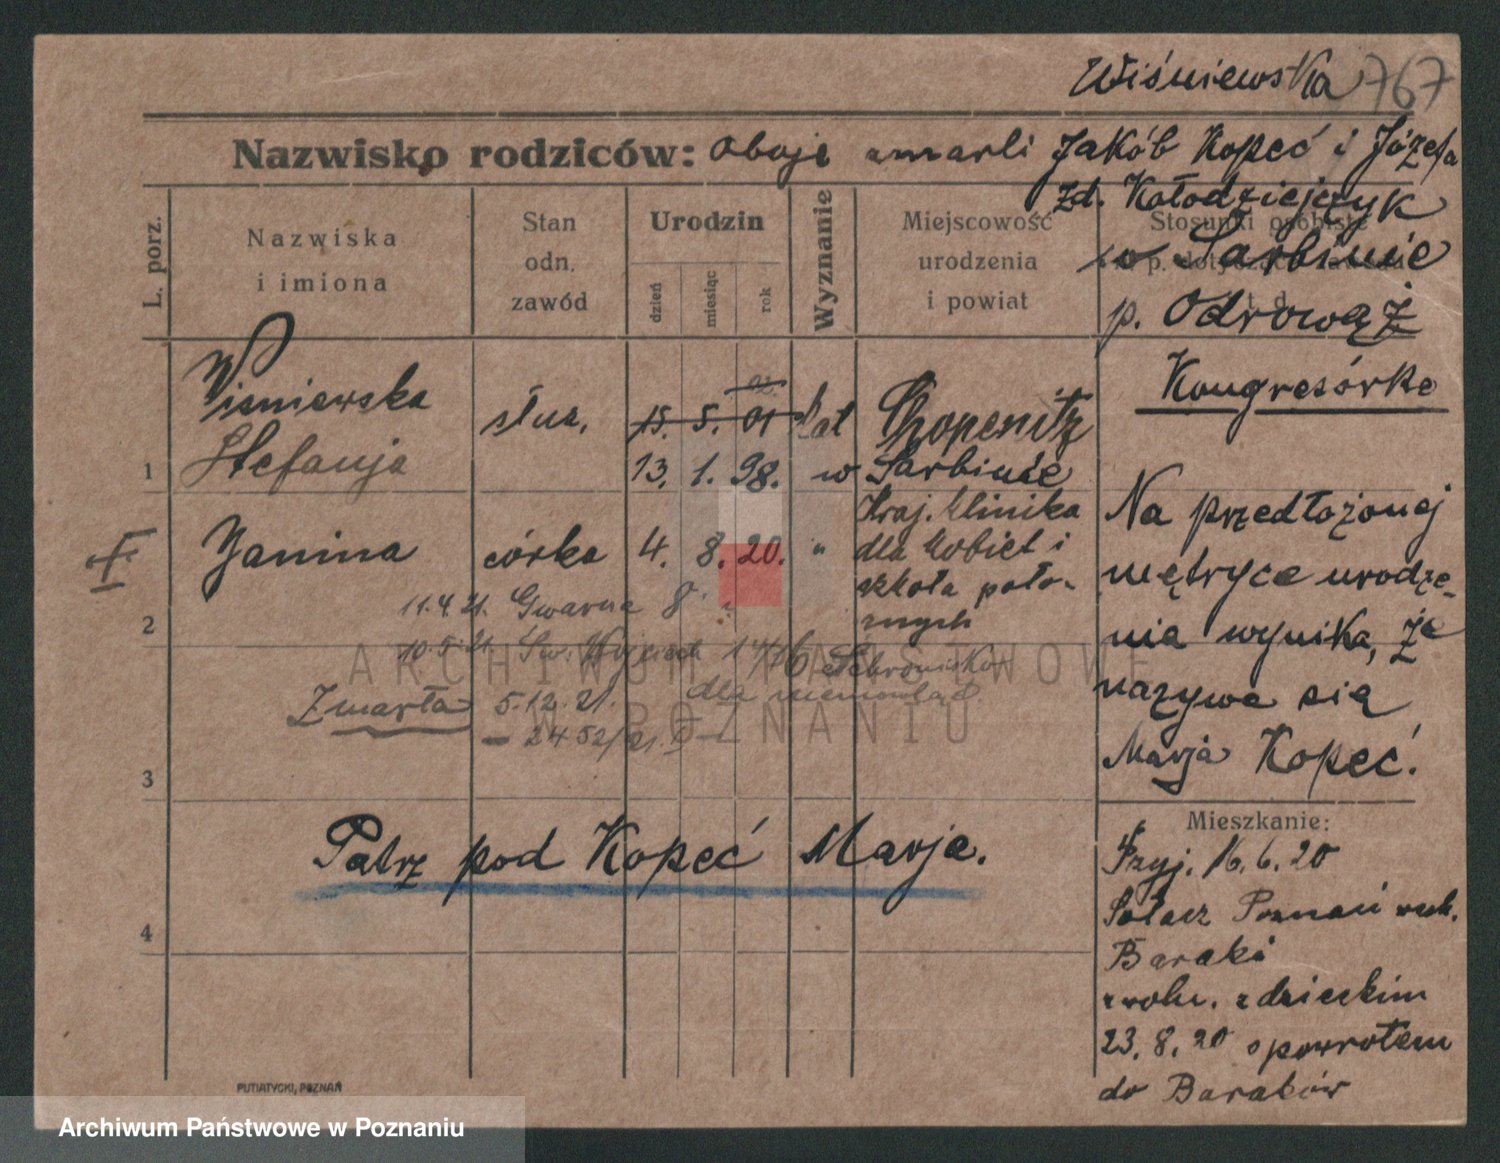 Wiśniewska 767
Nazwisko rodziców: oboje zmarli Jakób Kopeć i Józefa
zd. Kołodziejczyk
w Sarbinie
p. Odrowąż
Kongresówka
L. porz.
Nazwiska
i imiona
Stan
odn.
zawód
Urodzin
dzień
miesiąc
rok
Wyznanie
Miejscowość
urodzenia
i powiat
Stosunki osobiste
t. d.
1
Wisniewska
Stefanja
służ.
15. 5. 01
02.
13. 1. 98.
kat
Chopenitz
w Sarbinie
2
Janina
córka
4. 8. 20.
"
Kraj. Klinika
dla kobiet i
szkoła poło-
żnych
11.4.21. Gwarna 8
10.5.21. Św. Wojciech Schronisko
dla niemowląt
3
Zmarła 5.12.21.
- 2452/21.
Na przedłożonej
metryce urodze-
nia wynika, że
nazywa się
Marja Kopeć.
4
Patrz pod Kopeć Marja.
Mieszkanie:
Przyj. 16.6.20
Sołacz Poznań
Baraki
zwoln. z dzieckiem
23.8.20 z powrotem
do Baraków
PUTIATYCKI, POZNAŃ
ARCHIWUM PAŃSTWOWE
W POZNANIU
Archiwum Państwowe w Poznaniu